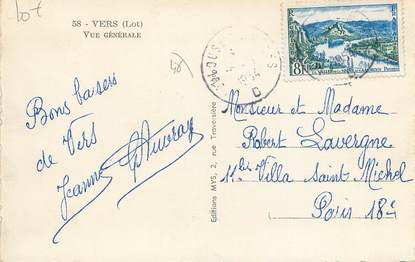 lot
58 - VERS (Lot)
VUE GÉNÉRALE
Bons baisers
de Vers
Jeanne
Editions MYS, 2, rue Traversière
Monsieur et Madame
Robert Lavergne
11bis Villa Saint Michel
Paris 18e